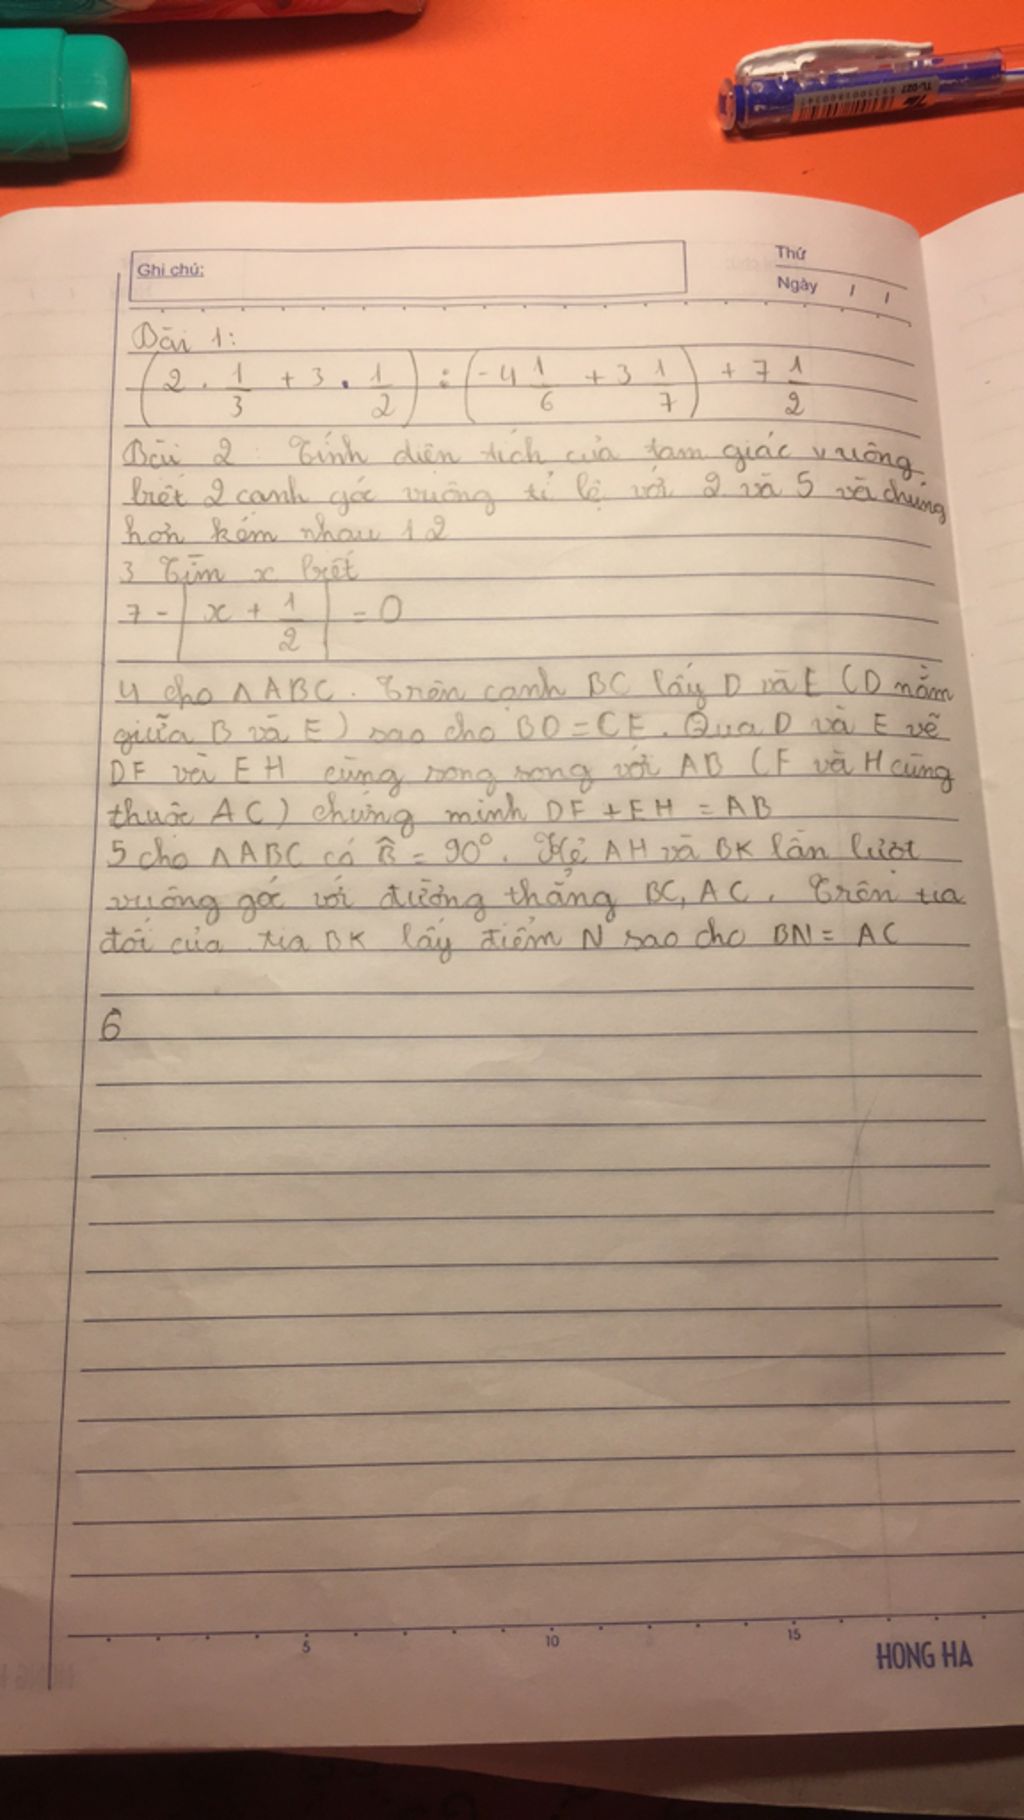 TL-027
Ghi chú:
Thứ
Ngày / /
Bài 1:
(2 . 1/3 + 3 . 1/2) : (-4 1/6 + 3 1/7) + 7 1/2
Bài 2 Tính diện tích của tam giác vuông
biết 2 cạnh góc vuông tỉ lệ với 2 và 5 và chúng
hơn kém nhau 12
3 Tìm x biết
7 - |x + 1/2| = 0
4 cho △ABC. Trên cạnh BC lấy D và E (D nằm
giữa B và E) sao cho BD = CE. Qua D và E vẽ
DF và EH cùng song song với AB (F và H cùng
thuộc AC) chứng minh DF + EH = AB
5 cho △ABC có B̂ = 90°. Kẻ AH và BK lần lượt
vuông góc với đường thẳng BC, AC. Trên tia
đối của tia BK lấy điểm N sao cho BN = AC
6
5 10 15
HONG HA